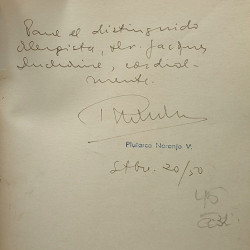 Para el distinguido
alergista, dr. Jacques
, cordial-
mente.
Plutarco Naranjo V.
Stbre. 20/50